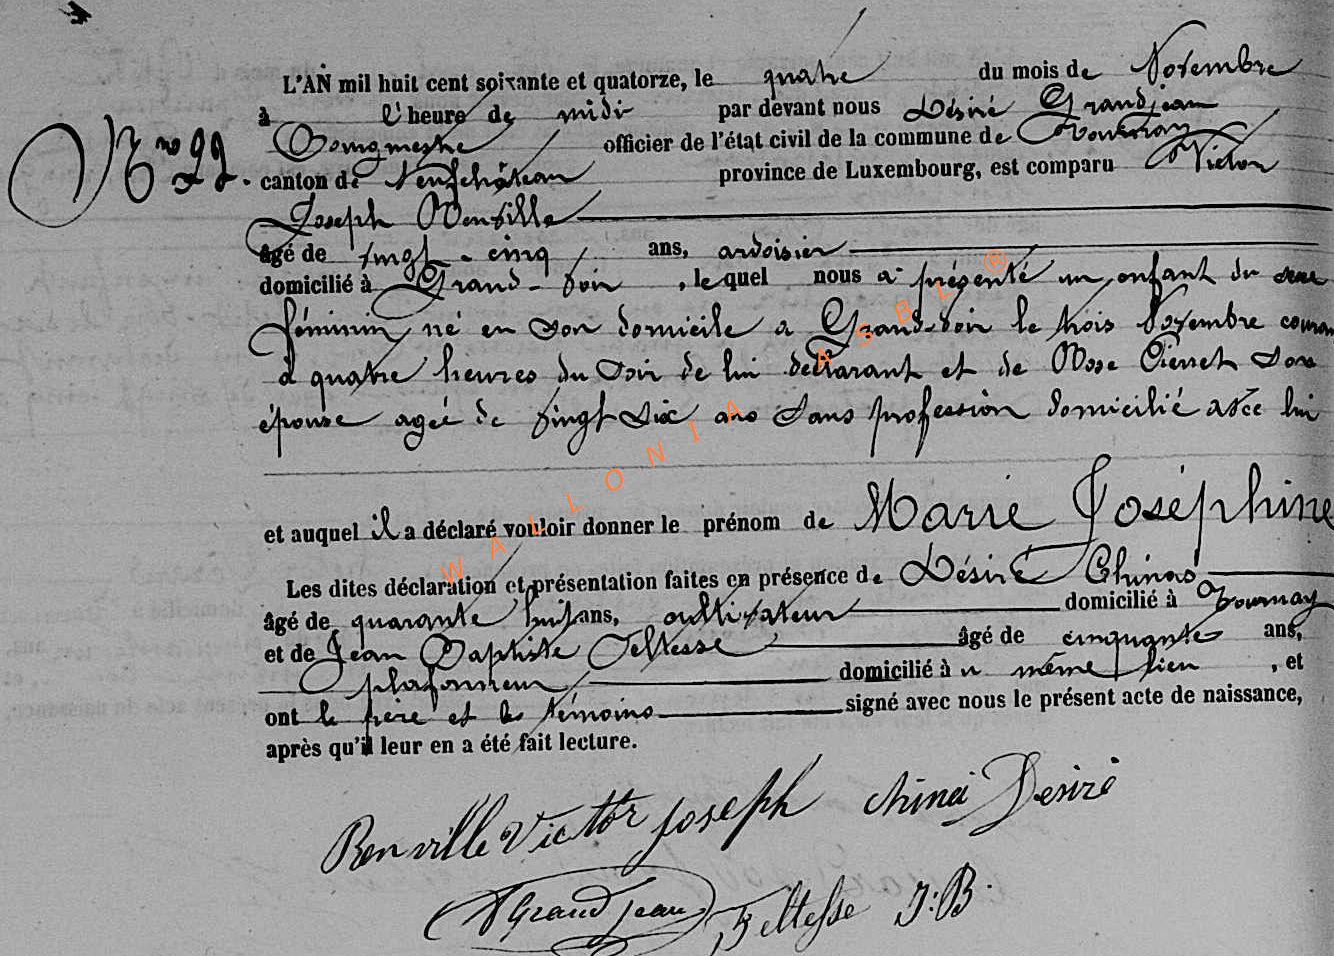 L'AN mil huit cent soixante et quatorze, le quatre du mois de Novembre
à l'heure de midi par devant nous Désiré Grandjean
Bourgmestre officier de l'état civil de la commune de Tournay
N° 22. canton de Neufchâteau province de Luxembourg, est comparu Victor
Joseph Renville
âgé de vingt-cinq ans, ardoisier
domicilié à Grand-Voir, lequel nous a présenté un enfant du sexe
féminin, né en son domicile a Grand-Voir le trois Novembre courant
à quatre heures du soir de lui déclarant et de Rose Pierret son
épouse agée de vingt six ans sans profession domicilié avec lui
et auquel il a déclaré vouloir donner le prénom de Marie Joséphine
Les dites déclaration et présentation faites en présence de Désiré Chinas
âgé de quarante huit ans, cultivateur domicilié à Tournay
et de Jean Baptiste Feltesse âgé de cinquante ans,
plafonneur domicilié à u même lieu, et
ont le père et les témoins signé avec nous le présent acte de naissance,
après qu'il leur en a été fait lecture.
Renville Victor Joseph Desiré
Grandjean Feltesse J:B.
WALLONIA ASBL ®